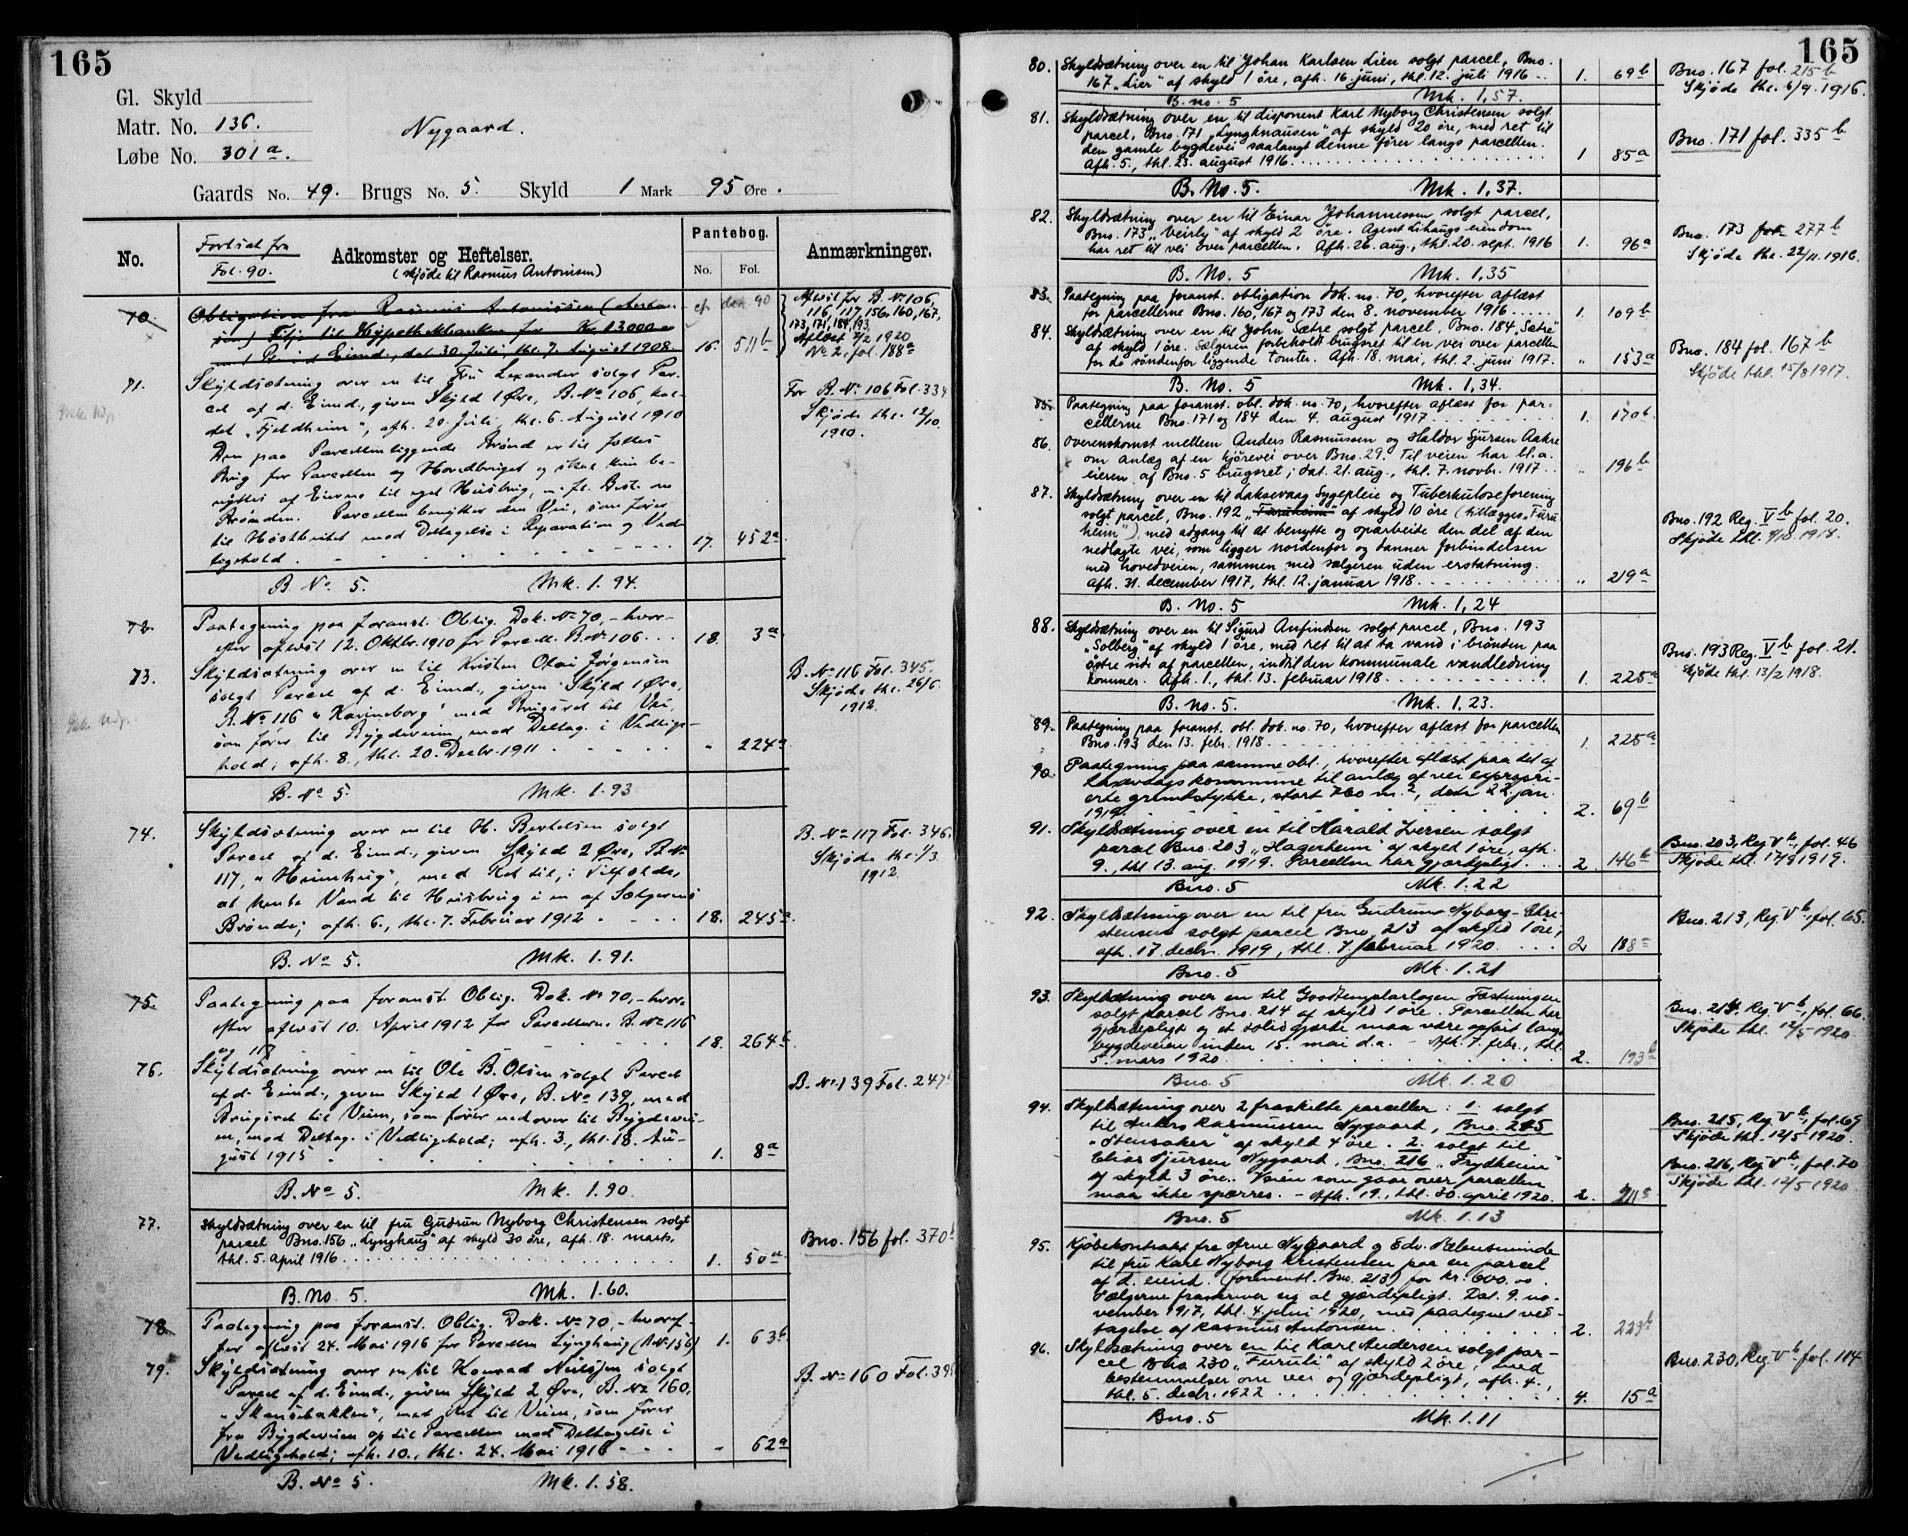 165
Gl. Skyld
Matr. No. 136.
Løbe No. 301a.
Nygaard.
Gaards No. 49. Brugs No. 5. Skyld 1 Mark 95 Øre.
No.
Fortsat fra
Fol. 90.
Adkomster og Heftelser.
(Skjøde til Rasmus Antonisen)
Pantebog.
No. Fol.
Anmærkninger.
70. Obligation fra Rasmus Antonissen
til Hypothekbanken for Kr. 3000
i d. Eiend., dat. 30 Juli, thl. 7. August 1908. 16. 511b
Afløst for B. No 106,
116, 117, 156, 160, 167,
173, 171, 184, 193
Afløst 2/2 1920
No 2, fol. 188a
71. Skyldsætning over en til Fru Lexander solgt Par-
cel af d. Eiend., given Skyld 1 Øre, B. No 106, kal-
det "Fjeldheim", afh. 20. Juli, thl. 6. August 1910
Den paa Parcellen liggende Brønd er til fælles
Brug for Parcellen og Hovedbruget og skal kun be-
nyttes af Eierne til eget Husbrug,
Brønden. Parcellen benytter den Vei, som fører
til Hovedbruket mod Deltagelse i Reparation og Ved-
ligehold. 17. 452a
For B. No 106 Fol. 334
Skjøde thl. 12/10
1910.
B. No 5. Mk. 1.94.
72. Paategning paa foranst. Oblig. Dok. No 70, - hvor-
efter afløst 12. Oktbr. 1910 for Parcell. B. No 106. 18. 3a
73. Skyldsætning over en til Kristen Olai Jørgensen
solgt Parcel af d. Eiend., given Skyld 1 Øre,
B. No 116 "Karineborg" med Brugsret til Vei,
som fører til Bygdeveien, mod Deltag. i Vedlige-
hold; afh. 8., thl. 20. Decbr. 1911 " 224a
B. No 116 Fol. 345
Skjøde thl. 26/6
1912.
B. No 5. Mk. 1.93
74. Skyldsætning over en til H. Bertelsen solgt
Parcel af d. Eiend., given Skyld 2 Øre, B. No
117, "Heimhug", med Ret til, i Tilfælde,
at hente Vand til Husbrug i en af Sælgerens
Brønde; afh. 6., thl. 7. Februar 1912 18. 245a
B. No 117 Fol. 346
Skjøde thl. 1/3
1912
B. No 5. Mk. 1.91.
75. Paategning paa foranst. Oblig. Dok. No 70, - hvor-
efter afløst 10. April 1912 for Parcellerne B. No 116
og 117 18. 264b
76. Skyldsætning over en til Ole B. Olsen solgt Parcel
af d. Eiend., given Skyld 1 Øre, B. No 139, med
Brugsret til Veien, som fører nedover til Bygdevei-
en, mod Deltag. i Vedligehold; afh. 3., thl. 18. Au-
gust 1915 1. 8a
B. No 139 Fol. 247b
B. No 5. Mk. 1.90.
77. Skyldsætning over en til fru Gudrun Nyborg Christensen solgt
parcel Bno. 156 "Lynghaug" af skyld 30 øre, afh. 18. marts,
thl. 5. april 1916 1. 50a
Bno. 156 fol. 370b
B. No. 5. Mk. 1.60.
78. Paategning paa foranst. Oblig. Dok. No 70, - hvoref-
ter afløst 24. Mai 1916 for Parcellen Lynghaug (B. No 156) 1. 63b
79. Skyldsætning over en til Konrad Nielsen solgt
Parcel af d. Eiend., given Skyld 2 Øre, B. No 160,
"Skansebakken", med Ret til Veien, som fører
fra Bygdeveien op til Parcellen mod Deltagelse i
Vedligehold; afh. 10., thl. 24. Mai 1916 " 62a
B. No 160 Fol. 395
B. No 5. Mk. 1.58.
165
80. Skyldsætning over en til Johan Karlsen Lien solgt parcel, Bno.
167 "Lier" af skyld 1 øre, afh. 16. juni, thl. 12. juli 1916 1. 69b
Bno. 167 fol. 215b
Skjøde thl. 6/9 1916.
B. no. 5 Mk. 1,57.
81. Skyldsætning over en til disponent Karl Nyborg Christensen solgt
parcel, Bno. 171 "Lynghausen" af skyld 20 øre, med ret til
den gamle bygdevei saalangt denne fører langs parcellen.
Afh. 5., thl. 23. august 1916 1 85a
Bno. 171 fol. 335b
B. No. 5. Mk. 1,37.
82. Skyldsætning over en til Einar Johannessen solgt parcel,
Bno. 173 "Veirly" af skyld 2 øre. Agent Lihaugs eiendom
har ret til vei over parcellen. Afh. 26. aug., thl. 20. sept. 1916 1. 96a
Bno. 173 fol. 277b
Skjøde thl. 22/11 1916.
B. No. 5 Mk. 1,35
83. Paategning paa foranst. obligation dok. no. 70, hvorefter aflæst
for parcellerne Bno. 160, 167 og 173 den 8. november 1916 1. 109b
84. Skyldsætning over en til John Sætre solgt parcel, Bno. 184 "Sætre"
af skyld 1 øre. Sælgeren forbeholdt brugsret til en vei over parcellen
for de søndenfor liggende tomter. Afh. 18. mai, thl. 2. juni 1917. " 153a
Bno. 184 fol. 167b
Skjøde thl. 15/8 1917.
B. No. 5 Mk. 1,34.
85. Paategning paa foranst. obl. dok. no. 70, hvorefter aflæst for par-
cellerne Bno. 171 og 184 den 4. august 1917 1. 170b
86. Overenskomst mellem Anders Rasmussen og Haldor Sjursen Aakre
om anlæg af en kjørevei over Bno. 29. Til veien har bl. a.
eieren af Bno. 5 brugsret; dat. 21. aug., thl. 7. novbr. 1917 " 196b
87. Skyldsætning over en til Laksevaag Sygepleie og Tuberkuloseforening
solgt parcel, Bno. 192 "Furuheim" af skyld 10 øre (tillægges "Furu-
heim"), med adgang til at benytte og oparbeide den del af den
nedlagte vei, som ligger nordenfor og danner forbindelsen
med hovedveien, sammen med sælgeren uden erstatning.
Afh. 31. december 1917, thl. 12. januar 1918 " 219a
Bno. 192 Reg. Vb fol. 20.
Skjøde thl. 1918.
B. No. 5 Mk. 1,24
88. Skyldsætning over en til Sigurd Anfindsen solgt parcel, Bno. 193
"Solberg" af skyld 1 øre, med ret til at ta vand i brønden paa
østre side af parcellen, indtil den kommunale vandledning
kommer. Afh. 1., thl. 13. februar 1918 1. 225a
Bno. 193 Reg. Vb fol. 21.
Skjøde thl. 13/2 1918.
B. no. 5. Mk. 1,23.
89. Paategning paa foranst. obl. dok. no. 70, hvorefter aflæst for parcellen
Bno. 193 den 13. febr. 1918 1. 225a
90. Paategning paa samme obl., hvorefter aflæst paa det af
Laxevaags kommune til anlæg af vei expropri-
erte grundstykke, stort 760 m.2, den 22. jan.
1919. 2. 69b
91. Skyldsætning over en til Harald Iversen solgt
parcel Bno. 203 "Hagerheim" af skyld 1 øre, afh.
9., thl. 13. aug. 1919. Parcellen har gjærdepligt. 2. 146b
Bno. 203, Reg. Vb, fol. 46
Skjøde thl. 17/9 1919.
Bno. 5 Mk. 1.22
92. Skyldsætning over en til fru Gudrun Nyborg-Chri-
stensen solgt parcel Bno. 213 af skyld 1 øre,
afh. 17. decbr. 1919, thl. 7. februar 1920 2 188a
Bno. 213, Reg. Vb, fol. 65.
Bno. 5 Mk. 1.21
93. Skyldsætning over en til Goodtemplarlogen Fæstningen
solgt parcel Bno. 214 af skyld 1 øre. Parcellen har
gjærdepligt og et solid gjærde maa være opført langs
bygdeveien inden 15. mai d. a. - Afh. 7. febr., thl.
5. mars 1920 2. 193b
Bno. 214, Reg. Vb, fol. 66.
Skjøde thl. 12/5 1920
Bno. 5 Mk. 1.20
94. Skyldsætning over 2 fraskilte parceller: 1. solgt
til Anders Rasmussen Nygaard, Bno. 215
"Stensaker" af skyld 4 øre. 2. solgt til
Elias Sjursen Nygaard, Bno. 216 "Frydheim"
af skyld 3 øre. Veien som gaar over parcellen
maa ikke spærres. - Afh. 19., thl. 30. april 1920. 2. 211a
Bno. 215, Reg. Vb, fol. 69
Skjøde thl. 12/5 1920.
Bno. 216, Reg. Vb, fol. 70
Skjøde thl. 12/5 1920
Bno. 5 Mk. 1.13
95. Kjøbekontrakt fra Arne Nygaard og Edv.
til fru Karl Nyborg Kristensen paa en parcel
af d. eiend. (forment. Bno. 213) for kr. 600.00.
Sælgerne fraskriver sig al gjærdepligt. Dat. 9. no-
vember 1917, thl. 4. juni 1920, med paategnet ved-
tagelse af Rasmus Antonisen. 2. 223b
96. Skyldsætning over en til Karl Andersen solgt par-
cel Bno. 230 "Furuli" af skyld 2 øre, med
bestemmelser om vei og gjærdepligt, afh. 4.,
thl. 5. decbr. 1922 4. 15a
Bno. 230, Reg. Vb fol. 114
Bno. 5 Mk. 1.11